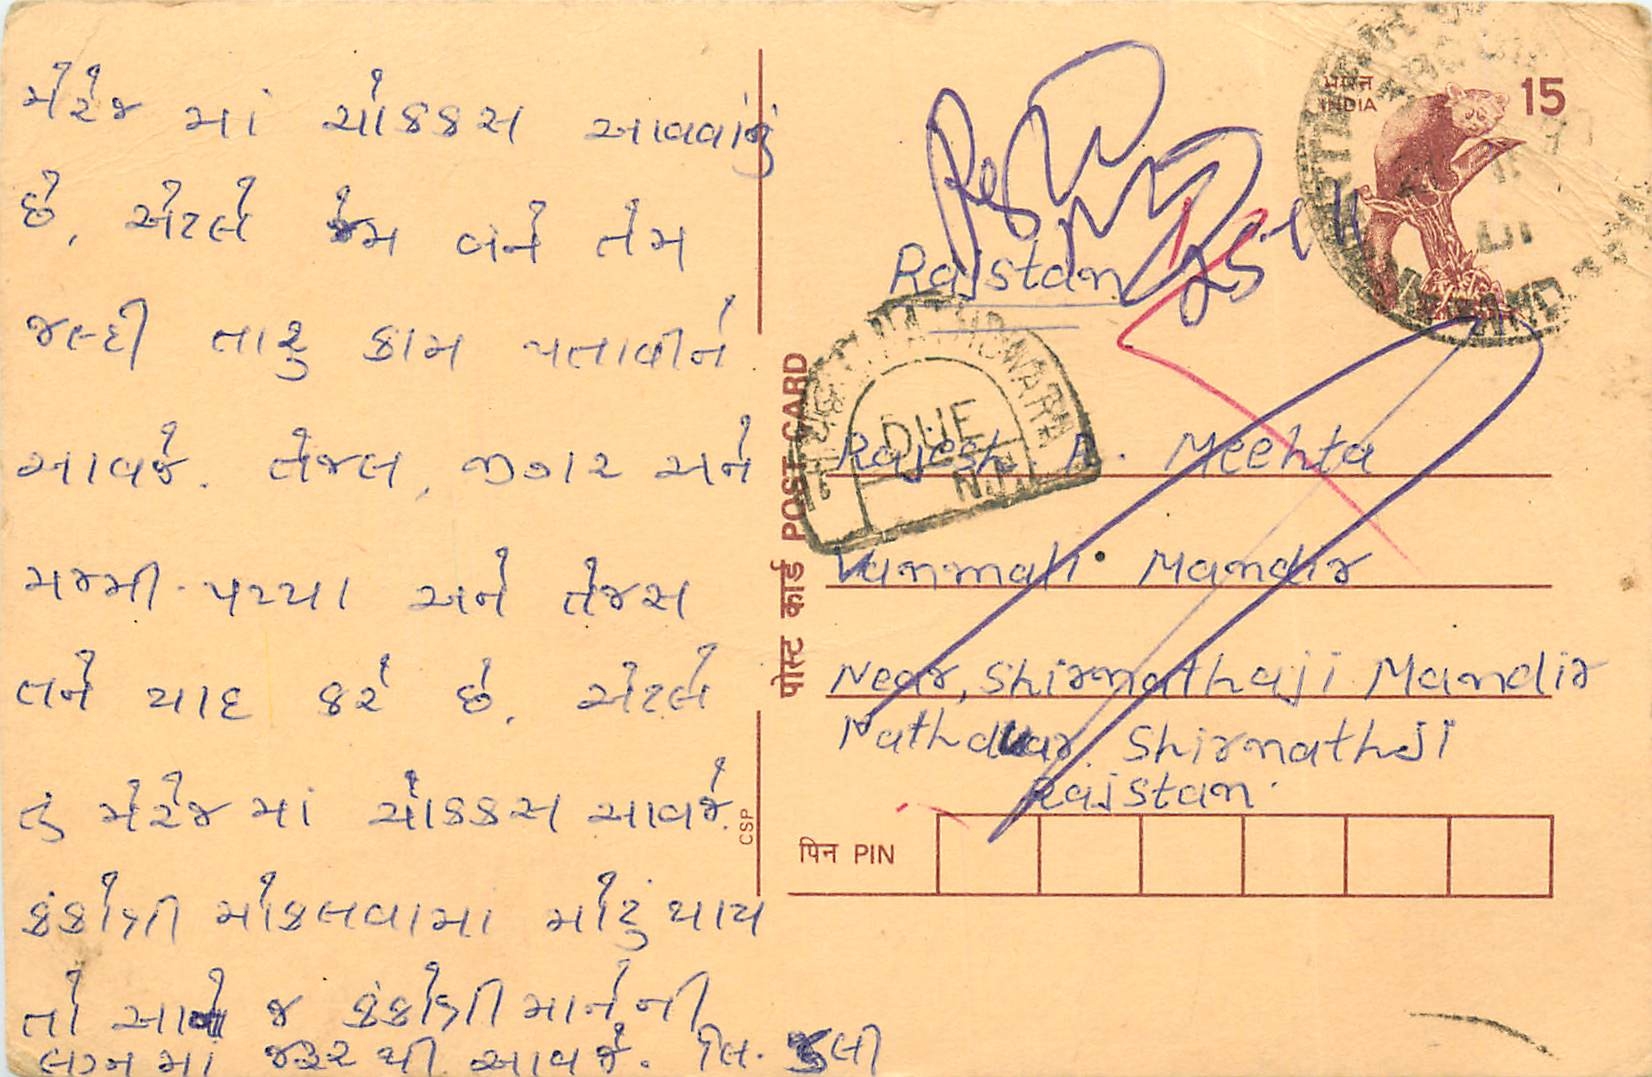 મેરેજ માં ચોકકસ આવવાનું
છે, એટલે જેમ બને તેમ
જલ્દી તારુ કામ પતાવીને
આવજે. તેજલ, જીગર અને
મમ્મી-પપ્પા અને તેજસ
તને યાદ કરે છે. એટલે
તું મેરેજ માં ચોકકસ આવજે.
કંકોત્રી મોકલવામા મોડું થાય
તો આને જ કંકોત્રી માનેની
લગ્ન માં જરૂર થી આવજે. લિ.
भारत
INDIA
15
Rajstan
DUE
POST CARD
पोस्ट कार्ड
Rajesh A. Meehta
Vanmali Mandir
Near, Shirnathaji Mandir
Nathduar Shirnathji
Rajstan.
CSP
पिन PIN